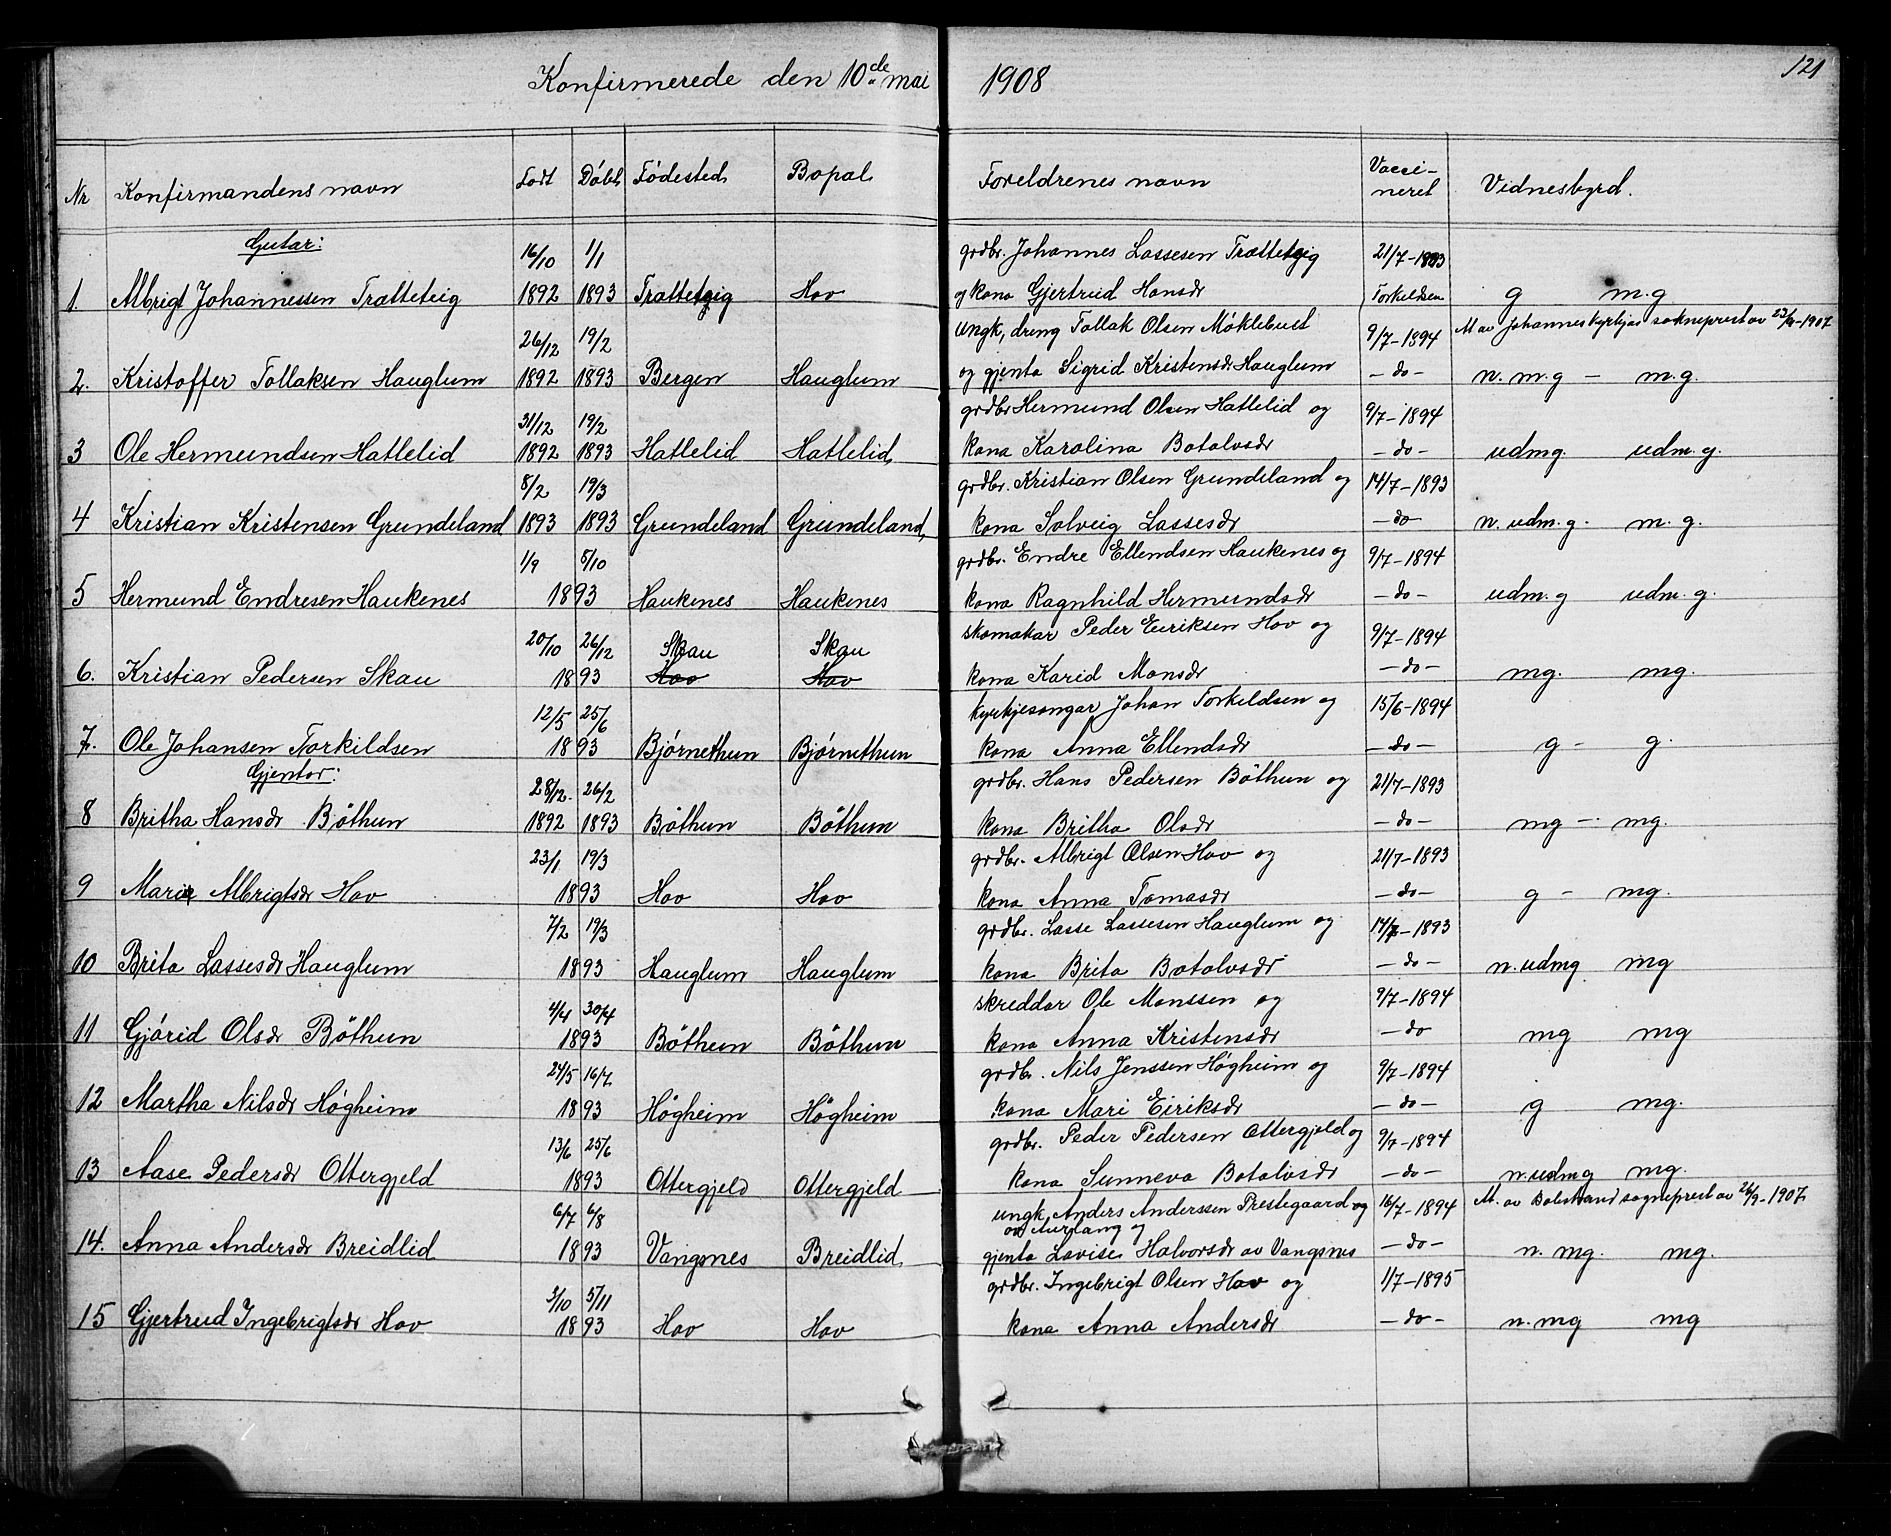 Konfirmerede den 10de mai 1908
121
Nr Konfirmandens navn Født Døbt Fødested Bopæl Foreldrenes navn Vacci-neret Vidnesbyrd.
Gutar:
16/10 1/1 grdbr. Johannes Lassesen Trætteteig 21/7-1893
1. Albrigt Johannessen Trætteteig 1892 1893 Trætteteig Hov og kona Gjertrud Hansdr Torkildsen g m.g
26/12 19/2 ungk, dreng Tollak Olsen Møklebust 9/7-1894 M av Johanneskyrkjas sokneprest av 1907
2. Kristoffer Tollaksen Hauglum 1892 1893 Bergen Hauglum og gjenta Sigrid Kristensdr Hauglum - do - n. m.g - m.g.
31/12 19/2 grdbr Hermund Olsen Hatlelid og 9/7-1894
3 Ole Hermundsen Hatlelid 1892 1893 Hatlelid Hatlelid kona Karolina Botolvsdr - do - udmg. udm.g.
8/2 19/3 grdbr. Kristian Olsen Grundeland og 14/7-1893
4 Kristian Kristensen Grundeland 1893 1893 Grundeland Grundeland kona Solveig Lassesdr - do - n. udm.g. m.g.
1/9 5/10 grdbr. Endre Ellendsen Haukenes og 9/7-1894
5 Hermund Endresen Haukenes 1893 Haukenes Haukenes kona Ragnhild Hermundsdr - do - udm.g udm.g.
20/10 26/12 Skau Skau skomakar Peder Eiriksen Hov og 9/7-1894
6. Kristian Pedersen Skau 1893 Hov Hov kona Karid Monsdr - do - mg. mg.
12/5 25/6 kyrkjesongar Johan Torkildsen og 15/6-1894
7. Ole Johansen Torkildsen 1893 Bjørnethun Bjørnethun kona Anna Ellendsdr - do - g - g.
Gjentor:
28/12. 26/2 grdbr. Hans Pedersen Böthun og 21/7-1893
8 Britha Hansdr Böthun 1892 1893 Böthun Böthun kona Britha Olsdr - do - mg - mg.
23/1 19/3 grdbr. Albrigt Olsen Hov og 21/7-1893
9 Mari Albrigtsdr Hov 1893 Hov Hov kona Anna Tomasdr - do - g - mg.
7/2 19/3 grdbr. Lasse Lassesen Hauglum og 14/7-1893
10 Brita Lassesdr Hauglum 1893 Hauglum Hauglum kona Brita Botolvsdr - do - n. udmg mg
4/4 30/4 skreddar Ole Monssen og 9/7-1894
11 Gjórid Olsdr Böthun 1893 Böthun Böthun kona Anna Kristensdr - do mg mg
24/5 16/7 grdbr. Nils Jenssen Høgheim og 9/7-1894
12 Martha Nilsdr Høgheim 1893 Högheim Högheim kona Mari Eiriksdr - do - g mg.
13/6 25/6 grdbr. Peder Pedersen Ottergjeld og 9/7-1894
13 Aase Pedersdr Ottergjeld 1893 Ottergjeld Ottergjeld kona Sunneva Botolvsdr - do - n. udmg mg.
6/7 6/8 ungk. Anders Anderssen Prestegaard og 16/7-1894 M. av Balestrand sogneprest av 26/9-1907
av Aurland og
14. Anna Andersdr Breidlid 1893 Vangsnes Breidlid gjenta Lovise Halvorsdr av Vangsnes - do - n. mg. mg.
3/10 5/11 grdbr. Ingebrigt Olsen Hov og 1/7-1895
15 Gjertrud Ingebrigtsdr Hov 1893 Hov Hov kona Anna Andersdr - do - n. mg mg